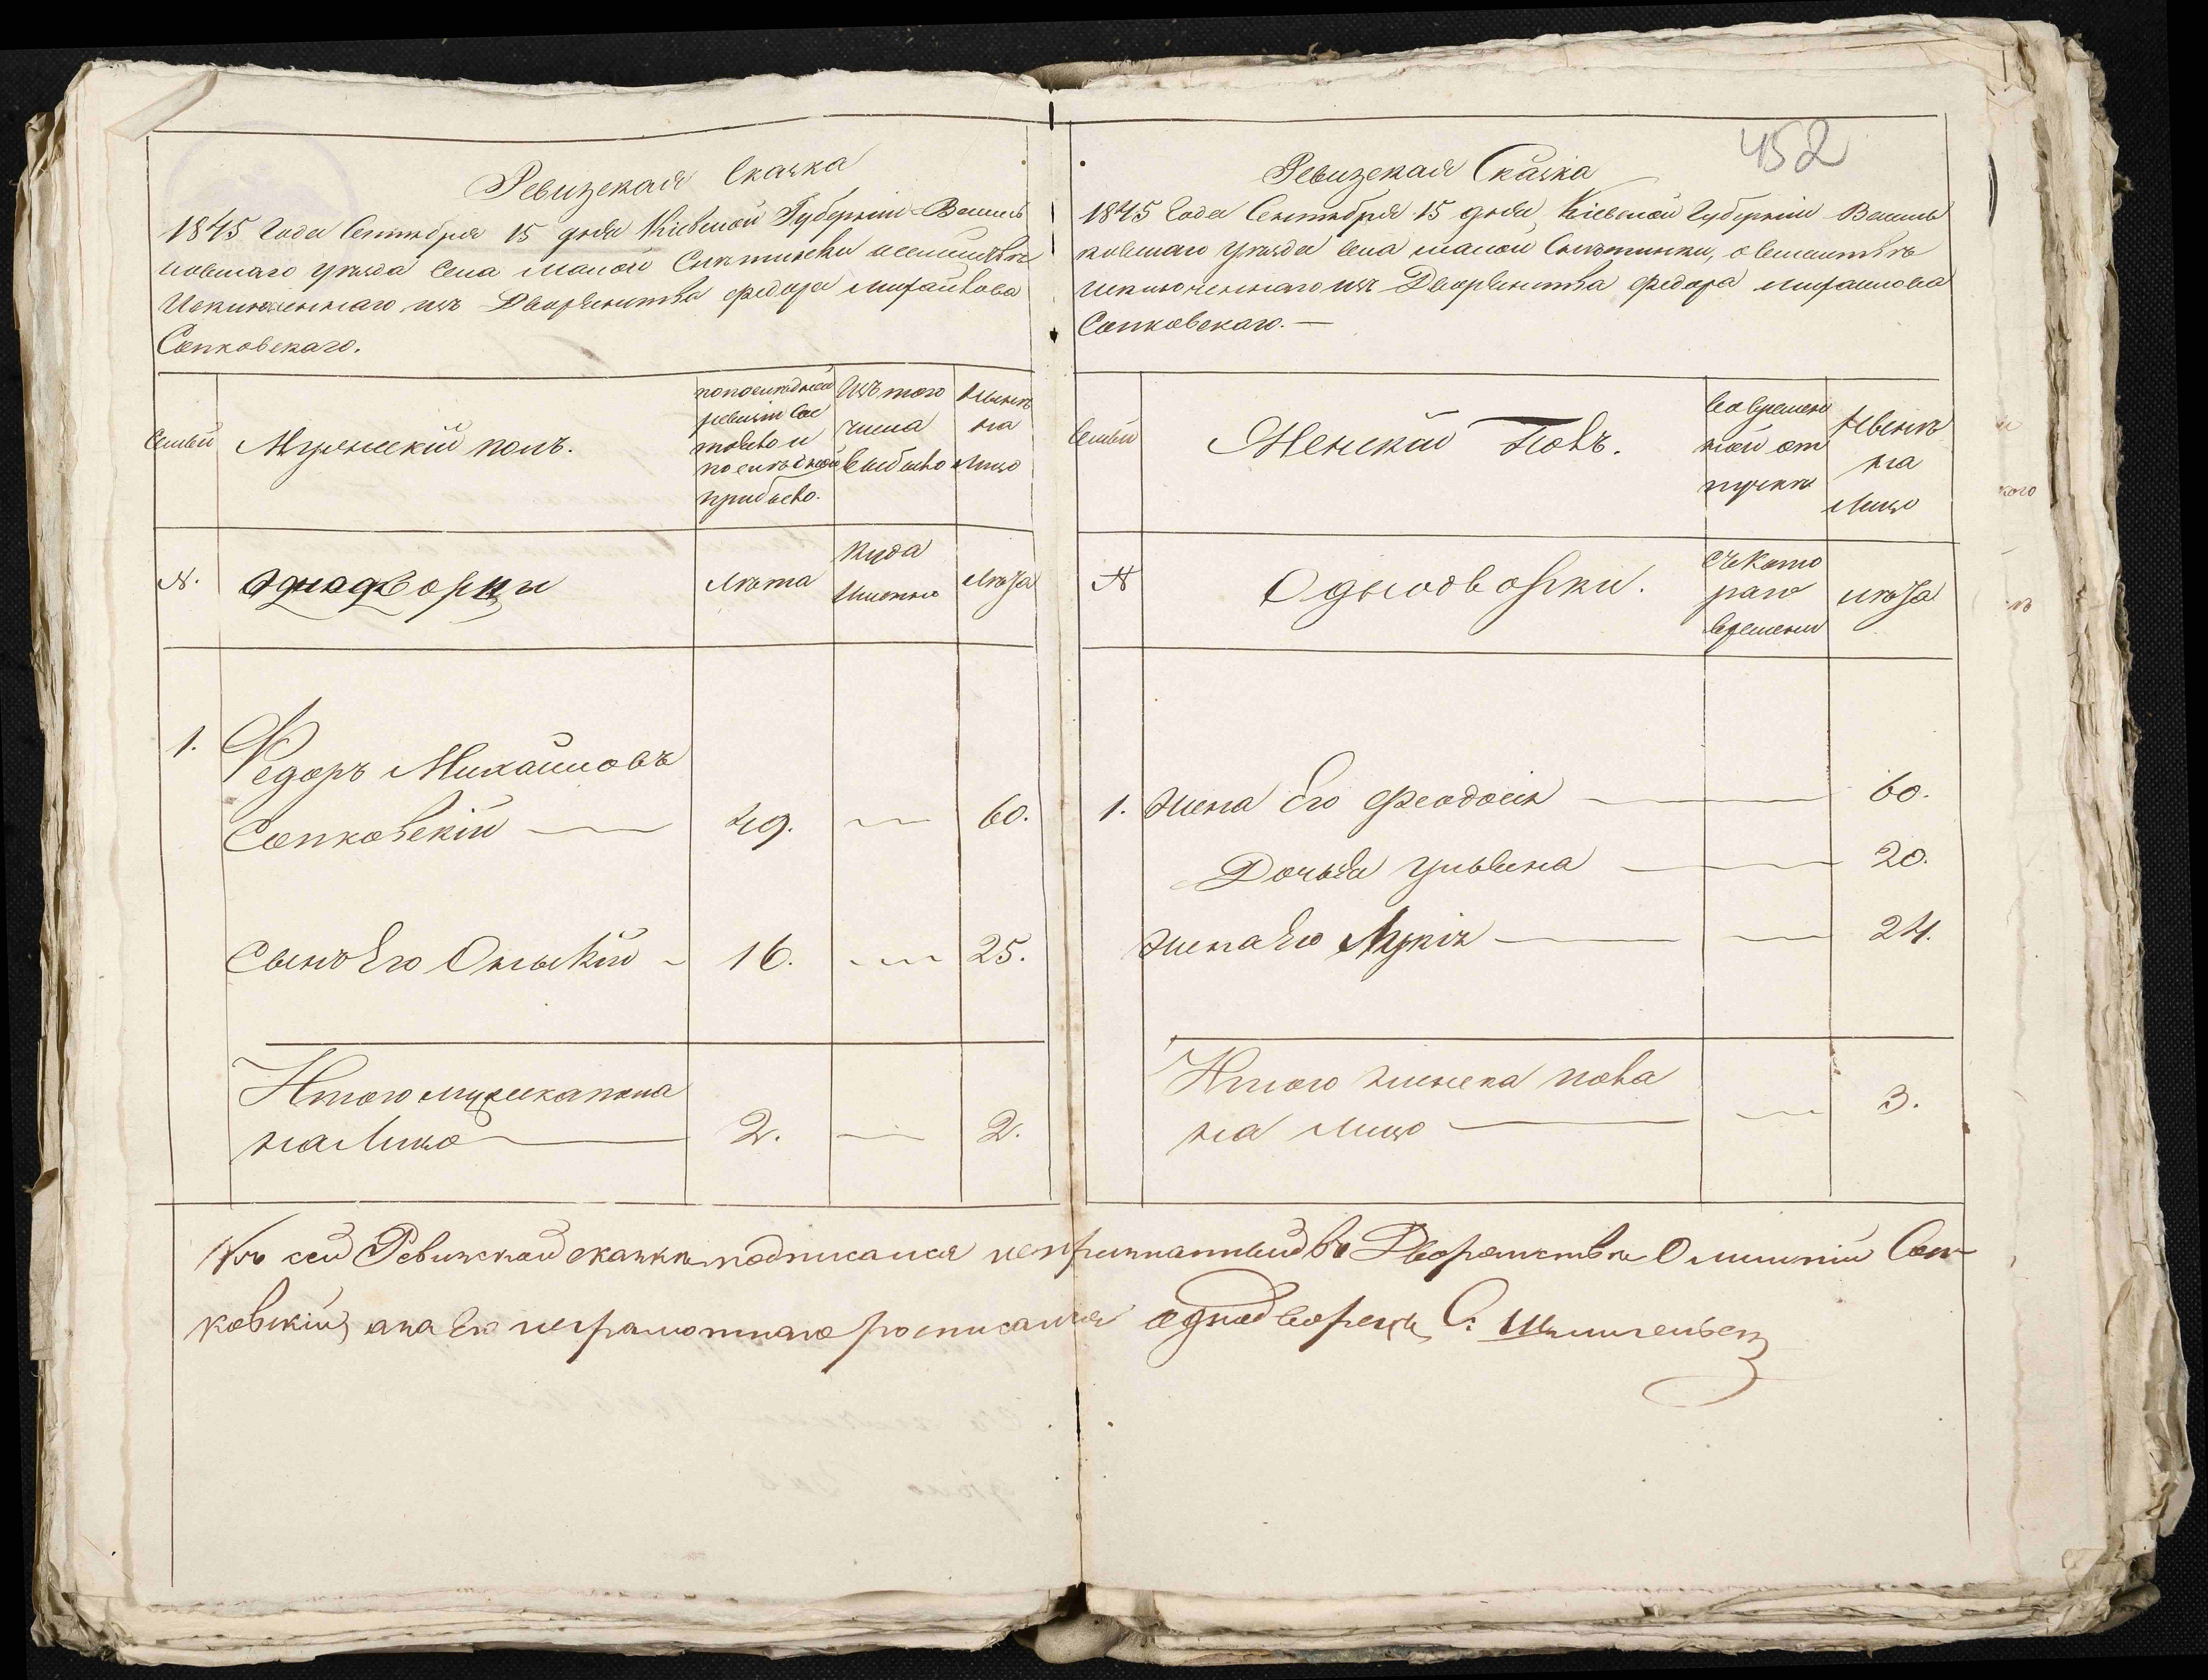 Ревизская Сказка
1845 Года Сентября 15 дня Кіевской Губерніи Василь
ковскаго уезда Села Малой
Исключеннаго изъ Дворянства Федора Михайлова
Сопковскаго.
Семьи
Мужеский полъ.
по последней
ревизіи сос
тояло и
после оной
прибыло.
Изъ того
числа
выбыло
Ныне
на
Лицо
N.
Однодворцы
Лета
Куда
Именно
Лета
1.
Федоръ Михайловъ
Сопковскій
49.
60.
Сынъ Его
16.
25.
Итого мужеска пола
на Лицо
2.
2.
452
Ревизская Сказка
1845 Года Сентября 15 дня Кіевской Губерніи Василь
ковскаго уезда Села Малой о семействе
исключеннаго изъ Дворянства Федора Михайлова
Сопковскаго.
Семьи
Женский Полъ.
во времен
ной от
лучке
Ныне
на
Лицо
N
Однодворки.
Съ кото
раго
времени
лета
1. Жена Его Феодосія
60.
Дочь Его Ульяна
20.
Жена Его
24.
Итого женска пола
на лицо
3.
Къ сей Ревизской сказке подписался исключенный въ Дворянстве Соп
ковскій, а за Его неграмотнаго росписался однодворецъ С.